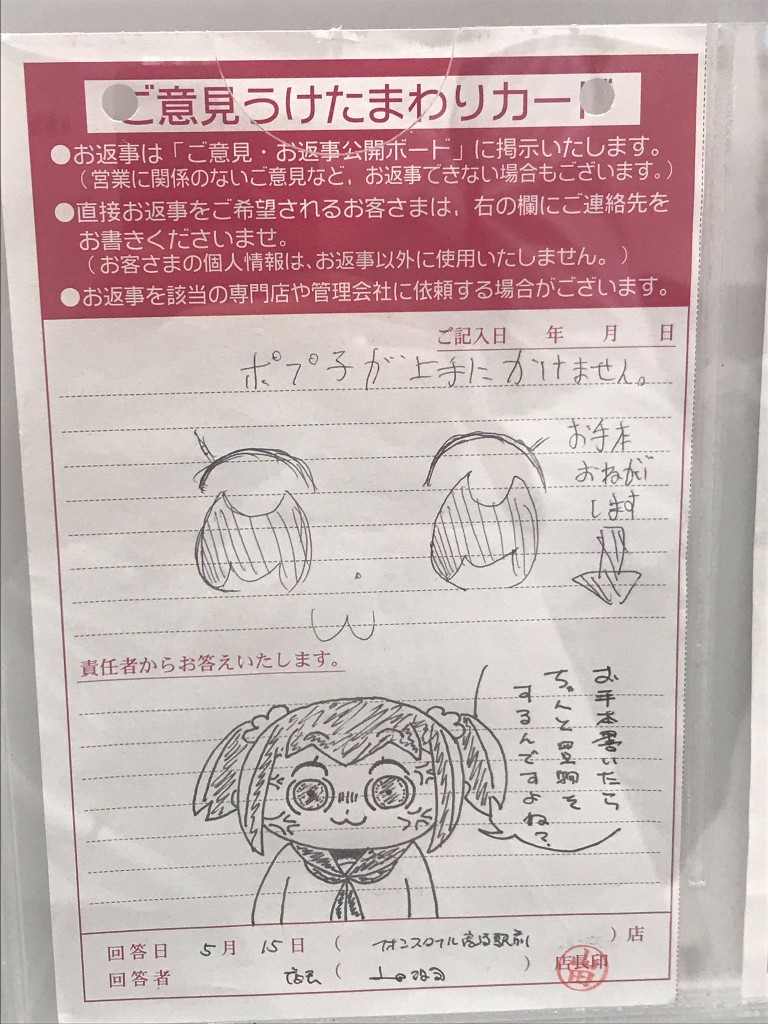 ご意見うけたまわりカード
●お返事は「ご意見・お返事公開ボード」に掲示いたします。
（営業に関係のないご意見など、お返事できない場合もございます。）
●直接お返事をご希望されるお客さまは、右の欄にご連絡先を
お書きくださいませ。
（お客さまの個人情報は、お返事以外に使用いたしません。）
●お返事を該当の専門店や管理会社に依頼する場合がございます。
ご記入日　年　月　日
ポプ子が上手にかけません。
お手本
おねがい
します
責任者からお答えいたします。
お手本書いたら
ちゃんと買物を
するんですよね?
回答日　5月　15日　（　イオンスタイル　駅前　）店
回答者　店長（　）　店長印